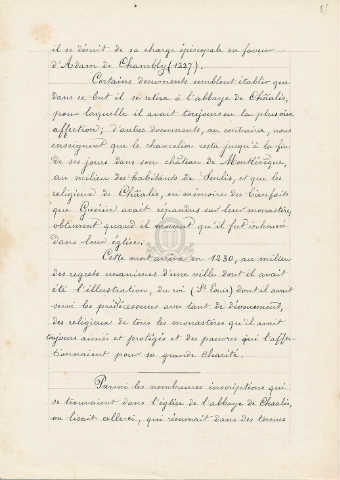 il se démit de sa charge épiscopale en faveur
d'Adam de Chambly (1227).
Certains documents semblent établir que
dans ce but il se retira à l'abbaye de Châalis,
pour laquelle il avait toujours eu la plus vive
affection; d'autres documents, au contraire, nous
enseignent que le chancelier resta jusqu'à la fin
de ses jours dans son château de Montlévêque,
au milieu des habitants de Senlis, et que les
religieux de Châalis, en mémoire des bienfaits
que Guérin avait répandus sur leur monastère,
obtinrent quand il mourut qu'il fut inhumé
dans leur église.
Cette mort arriva en 1230, au milieu
des regrets unanimes d'une ville dont il avait
été l'illustration, du roi (St Louis) dont il avait
servi les prédécesseurs avec tant de dévouement,
des religieux de tous les monastères qu'il avait
toujours aimés et protégés et des pauvres qui l'affec-
tionnaient pour sa grande charité.
Parmi les nombreuses inscriptions qui
se trouvaient dans l'église de l'abbaye de Chaalis,
on lisait celle-ci, qui résumait dans des termes